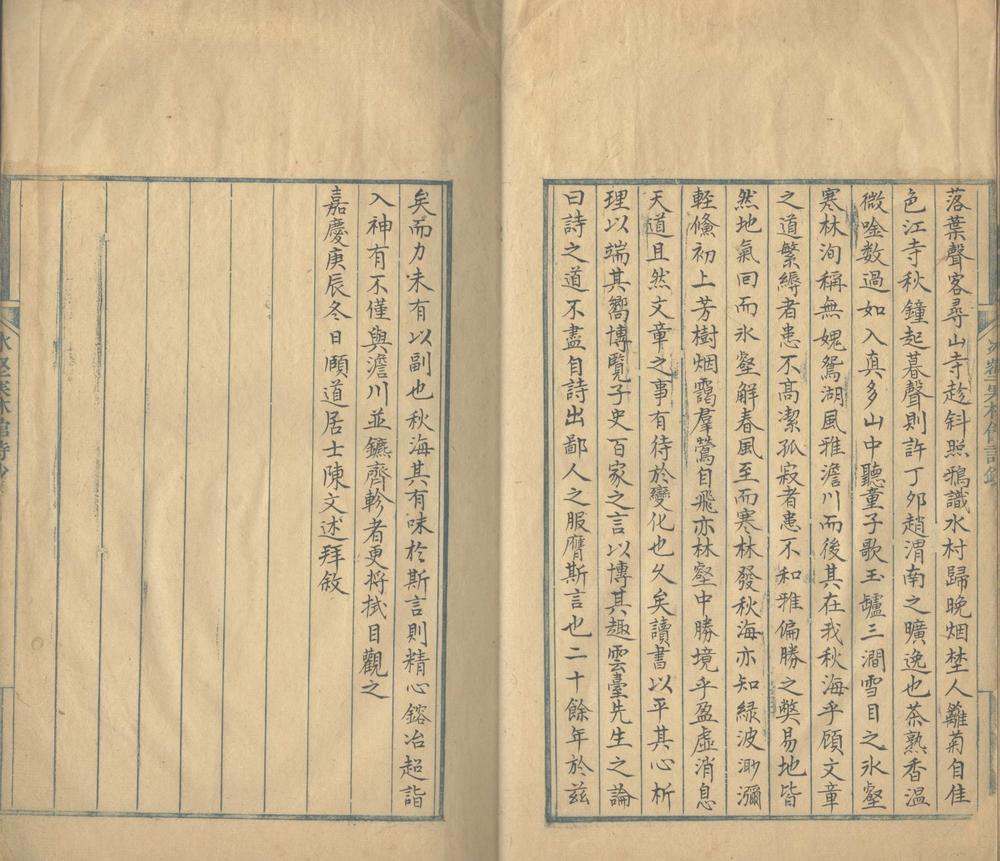 落葉聲客尋山寺趁斜照鴉識水村歸晚烟埜人籬菊自佳
色江寺秋鐘起暮聲則許丁夘趙渭南之曠逸也茶熟香温
微唫数過如入真多山中聽童子歌玉罏三澗雪目之氷壑
寒林洵稱無媿鴛湖風雅澹川而後其在我秋海乎顧文章
之道繁縟者患不高潔孤寂者患不和雅偏勝之獘易地皆
然地氣回而氷壑解春風至而寒林發秋海亦知緑波渺瀰
輕鯈初上芳樹烟靄羣鶯自飛亦林壑中勝境乎盈虛消息
天道且然文章之事有待於變化也久矣讀書以平其心析
理以端其嚮博覽子史百家之言以博其趣雲臺先生之論
曰詩之道不盡自詩出鄙人之服膺斯言也二十餘年於兹
矣而力未有以副也秋海其有味於斯言則精心鎔冶超詣
入神有不僅與澹川並鑣齊軫者更将拭目觀之
嘉慶庚辰冬日頤道居士陳文述拜敘